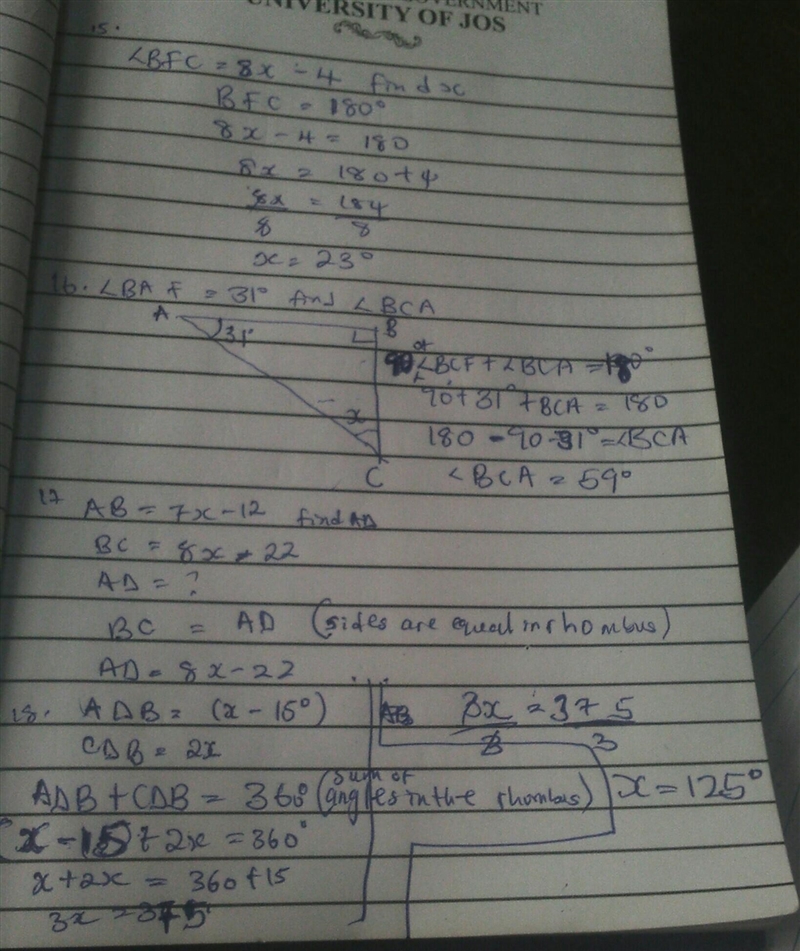 GOVERNMENT
UNIVERSITY OF JOS
15.
∠BFC = 8x - 4 find x
BFC = 180°
8x - 4 = 180
8x = 180 + 4
8x = 184
8 8
x = 23°
16. ∠BAF = 31° find ∠BCA
A B
31°
∠BCF + ∠BCA = 180°
90 + 31° + BCA = 180
x
180 - 90 - 31° = ∠BCA
C ∠BCA = 59°
17 AB = 7x - 12 find AD
BC = 8x - 22
AD = ?
BC = AD (sides are equal in rhombus)
AD = 8x - 22
18. ADB = (x - 15°)
CDB = 2x
ADB + CDB = 360° (sum of angles in the rhombus)
x - 15 + 2x = 360°
x + 2x = 360 + 15
3x = 375
3x = 375
3 3
x = 125°